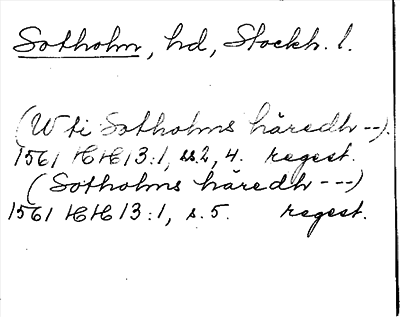 Sotholm, hd, Stockh. l.
(W ti Sotholms häredh --).
1561 HH 13:1, ss. 2, 4. regest.
(Sotholms häredh ---)
1561 HH 13:1, s. 5. regest.